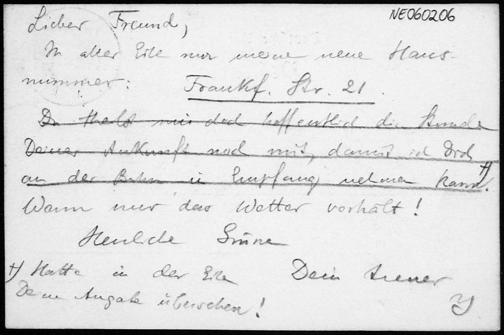 NE060206
Lieber Freund,
In aller Eile nur meine neue Haus-
nummer: Frankf. Str. 21.
Du theilst mir doch hoffentlich die Stunde
Deiner Ankunft noch mit, damit ich Dich
an der Bahn in Empfang nehmen kann! +)
Wenn nur das Wetter vorhält!
Herzliche Grüsse
Dein treuer
+) Hatte in der Eile
Deine Angabe übersehen!